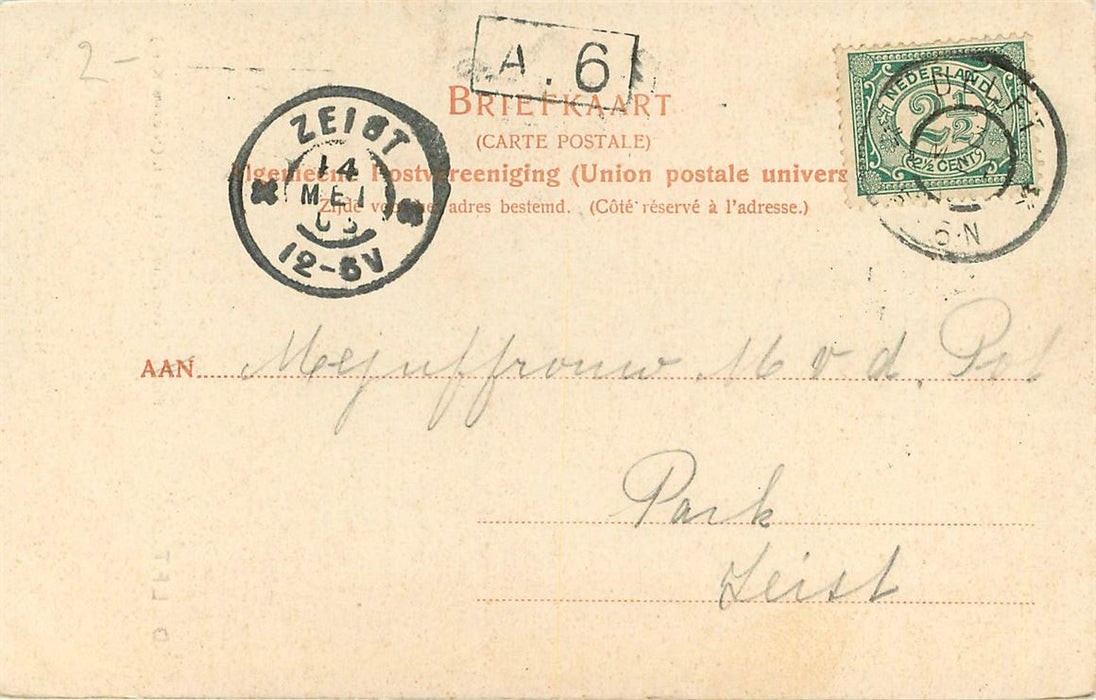 2-
A. 6
BRIEFKAART
(CARTE POSTALE)
Algemeene Postvereeniging (Union postale univers
Zijde voor het adres bestemd. (Côté réservé à l'adresse.)
ZEIST
14
MEI
12-6V
NEDERLAND
2½
2½ CENT
DELFT
5-N
AAN Mejuffrouw M v d. Pol
Park
Zeist